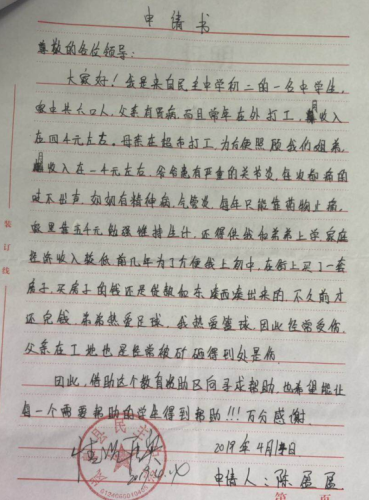 申请书
尊敬的各位领导：
大家好！我是来自民主中学初二的一名中学生，
家里共六口人，父亲有胃病，而且常年在外打工，月收入
在四千元左右。母亲在超市打工，为方便照顾我们姐弟，
月收入在一千元左右，爷爷患有严重的关节炎，每次都痛的
说不出声。奶奶有精神病，气管炎，每年只能靠药物止痛，
家里靠5千元勉强维持生计，还得供我和弟弟上学，家庭
经济收入较低，前几年为了方便我上初中，在街上买了一套
房子，买房子的钱还是借款和东凑西凑出来的，不久前才
还完钱，弟弟热爱足球，我热爱篮球，因此经常受伤，
父亲在工地也是经常被砂砸得到处是伤。
因此，借助这个教育救助区向寻求帮助，也希望能让
每一个需要帮助的学生得到帮助!!!万分感谢。
2019.4.10
2019年4月1日
申请人：陈
装订线
第 页